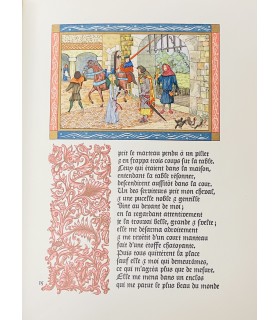 prit le marteau pendu à un pilier
& en frappa trois coups sur la table.
Ceux qui étaient dans la maison,
entendant la table résonner,
descendirent aussitôt dans la cour.
Un des serviteurs prit mon cheval,
& une pucelle noble & gentille
Vint au devant de moi ;
en la regardant attentivement
je la trouvai belle, grande & svelte ;
elle me désarma adroitement
& me revêtit d'un court manteau
fait d'une étoffe chatoyante.
Puis tous quittèrent la place
sauf elle & moi qui demeurâmes,
ce qui m'agréa plus que de mesure.
Elle me mena dans un enclos
qui me parut le plus beau du monde